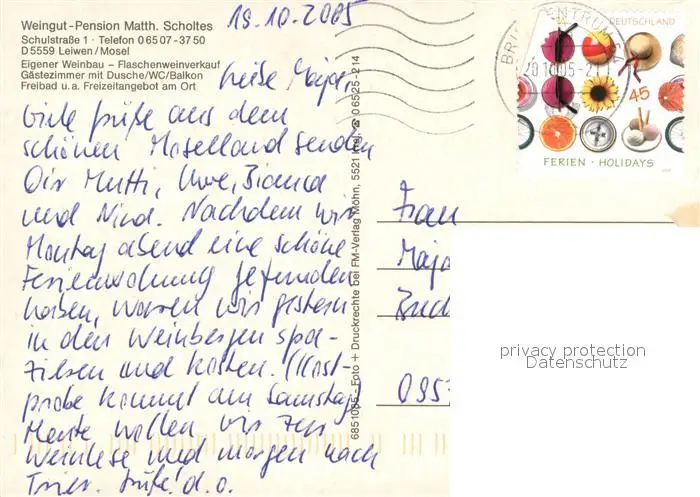 Weingut-Pension Matth. Scholtes
Schulstraße 1 · Telefon 0 65 07 - 37 50
D 5559 Leiwen/Mosel
Eigener Weinbau – Flaschenweinverkauf
Gästezimmer mit Dusche/WC/Balkon
Freibad u.a. Freizeitangebot am Ort
19.10.2005
Liebe Maja,
Viele Grüße aus dem
schönen Moselland senden
Dir Mutti, Uwe, Bianca
und Nina. Nachdem wir
Montag abend eine schöne
Ferienwohnung gefunden
haben, waren wir gestern
in den Weinbergen spa-
zieren und kosten. (Kost-
probe kommt am Samstag)
Heute wollen wir zur
Weinlese und morgen nach
Trier. Grüße! d. o.
6851005 - Foto + Druckrechte bei FM-Verlag Möhn, 5521 ☎ 0 6525 - 214
BRIEFZENTRUM 54
20.10.05-21
DEUTSCHLAND
45
FERIEN · HOLIDAYS
Frau
Maja
0953
privacy protection
Datenschutz